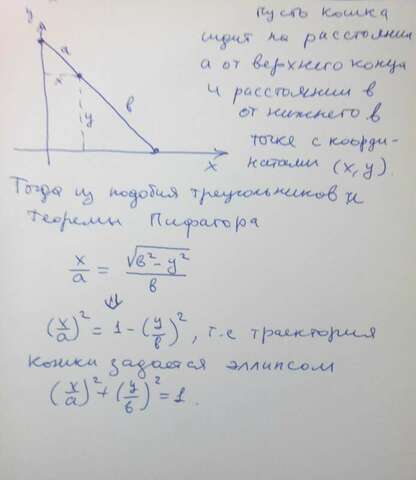 Пусть кошка
сидит на расстоянии
a от верхнего конца
и расстоянии b
от нижнего в
точке с коорди-
натами (x, y).
y
a
x
b
y
x
Тогда из подобия треугольников и
теоремы Пифагора
x/a = √(b² - y²)/b
⇓
(x/a)² = 1 - (y/b)², т.е траектория
кошки задается эллипсом
(x/a)² + (y/b)² = 1.